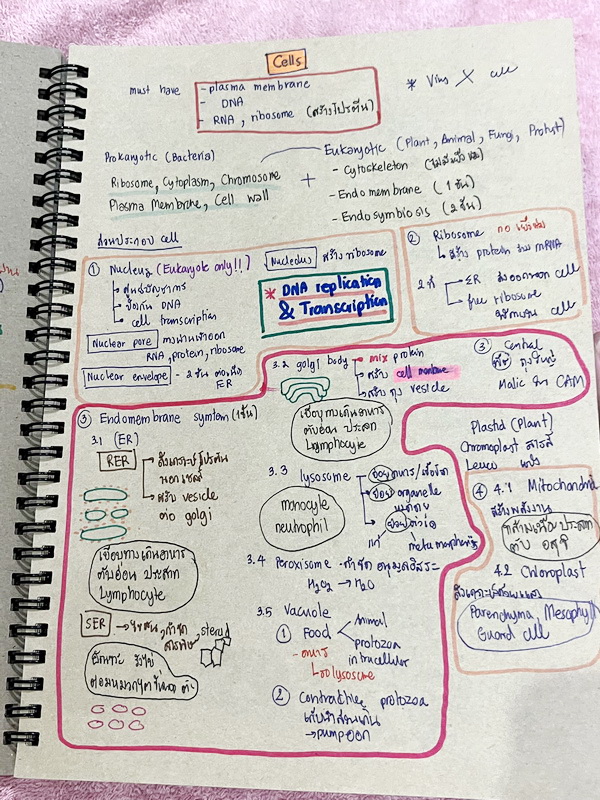 Cells
must have - plasma membrane
- DNA
- RNA, ribosome (สร้างโปรตีน)
* Virus X cell
Prokaryotic (Bacteria)
Ribosome, Cytoplasm, Chromosome
Plasma Membrane, Cell wall
+
Eukaryotic (Plant, Animal, Fungi, Protist)
- Cytoskeleton (ไม่มีเยื่อหุ้ม)
- Endomembrane (1 ชั้น)
- Endosymbiosis (2 ชั้น)
ส่วนประกอบ cell
① Nucleus (Eukaryote only!!)
ศูนย์บัญชาการ
DNA
cell transcription
Nuclear pore
RNA, protein, ribosome
Nuclear envelope - 2 ชั้น ต่อเนื่อง
ER
Nucleolus สร้าง ribosome
* DNA replication
& Transcription
② Ribosome no เยื่อหุ้ม
สร้าง protein จาก mRNA
2 ที่ ER ส่งออกนอก cell
free ribosome
ใช้ภายใน cell
③ Endomembrane symtom (1 ชั้น)
3.1 (ER)
RER สังเคราะห์โปรตีน
นอกเซลล์
สร้าง vesicle
ต่อ golgi
เยื่อบุทางเดินอาหาร
ตับอ่อน ประสาท
Lymphocyte
SER steroid
3.2 golgi body mix protein
สร้าง cell membrane
สร้างถุง vesicle
เยื่อบุทางเดินอาหาร
ตับอ่อน ประสาท
Lymphocyte
3.3 lysosome
ย่อยอาหาร/เชื้อโรค
ย่อย organelle
monocyte
neutrophil
metamorphosis
3.4 Peroxisome - กำจัด อนุมูลอิสระ
H₂O₂ → H₂O
3.5 Vacuole
① Food Animal
protozoa
intracellular
- อาหาร
② Contractile protozoa
เก็บน้ำส่วนเกิน
→ pump ออก
③ Central
พืช ถุงใหญ่
Malic จาก CAM
Plastid (Plant)
Chromoplast สารสี
Leuco แป้ง
④ 4.1 Mitochondria
สร้างพลังงาน
กล้ามเนื้อ ประสาท
ตับ อสุจิ
4.2 Chloroplast
Parenchyma, Mesophyll
Guard cell